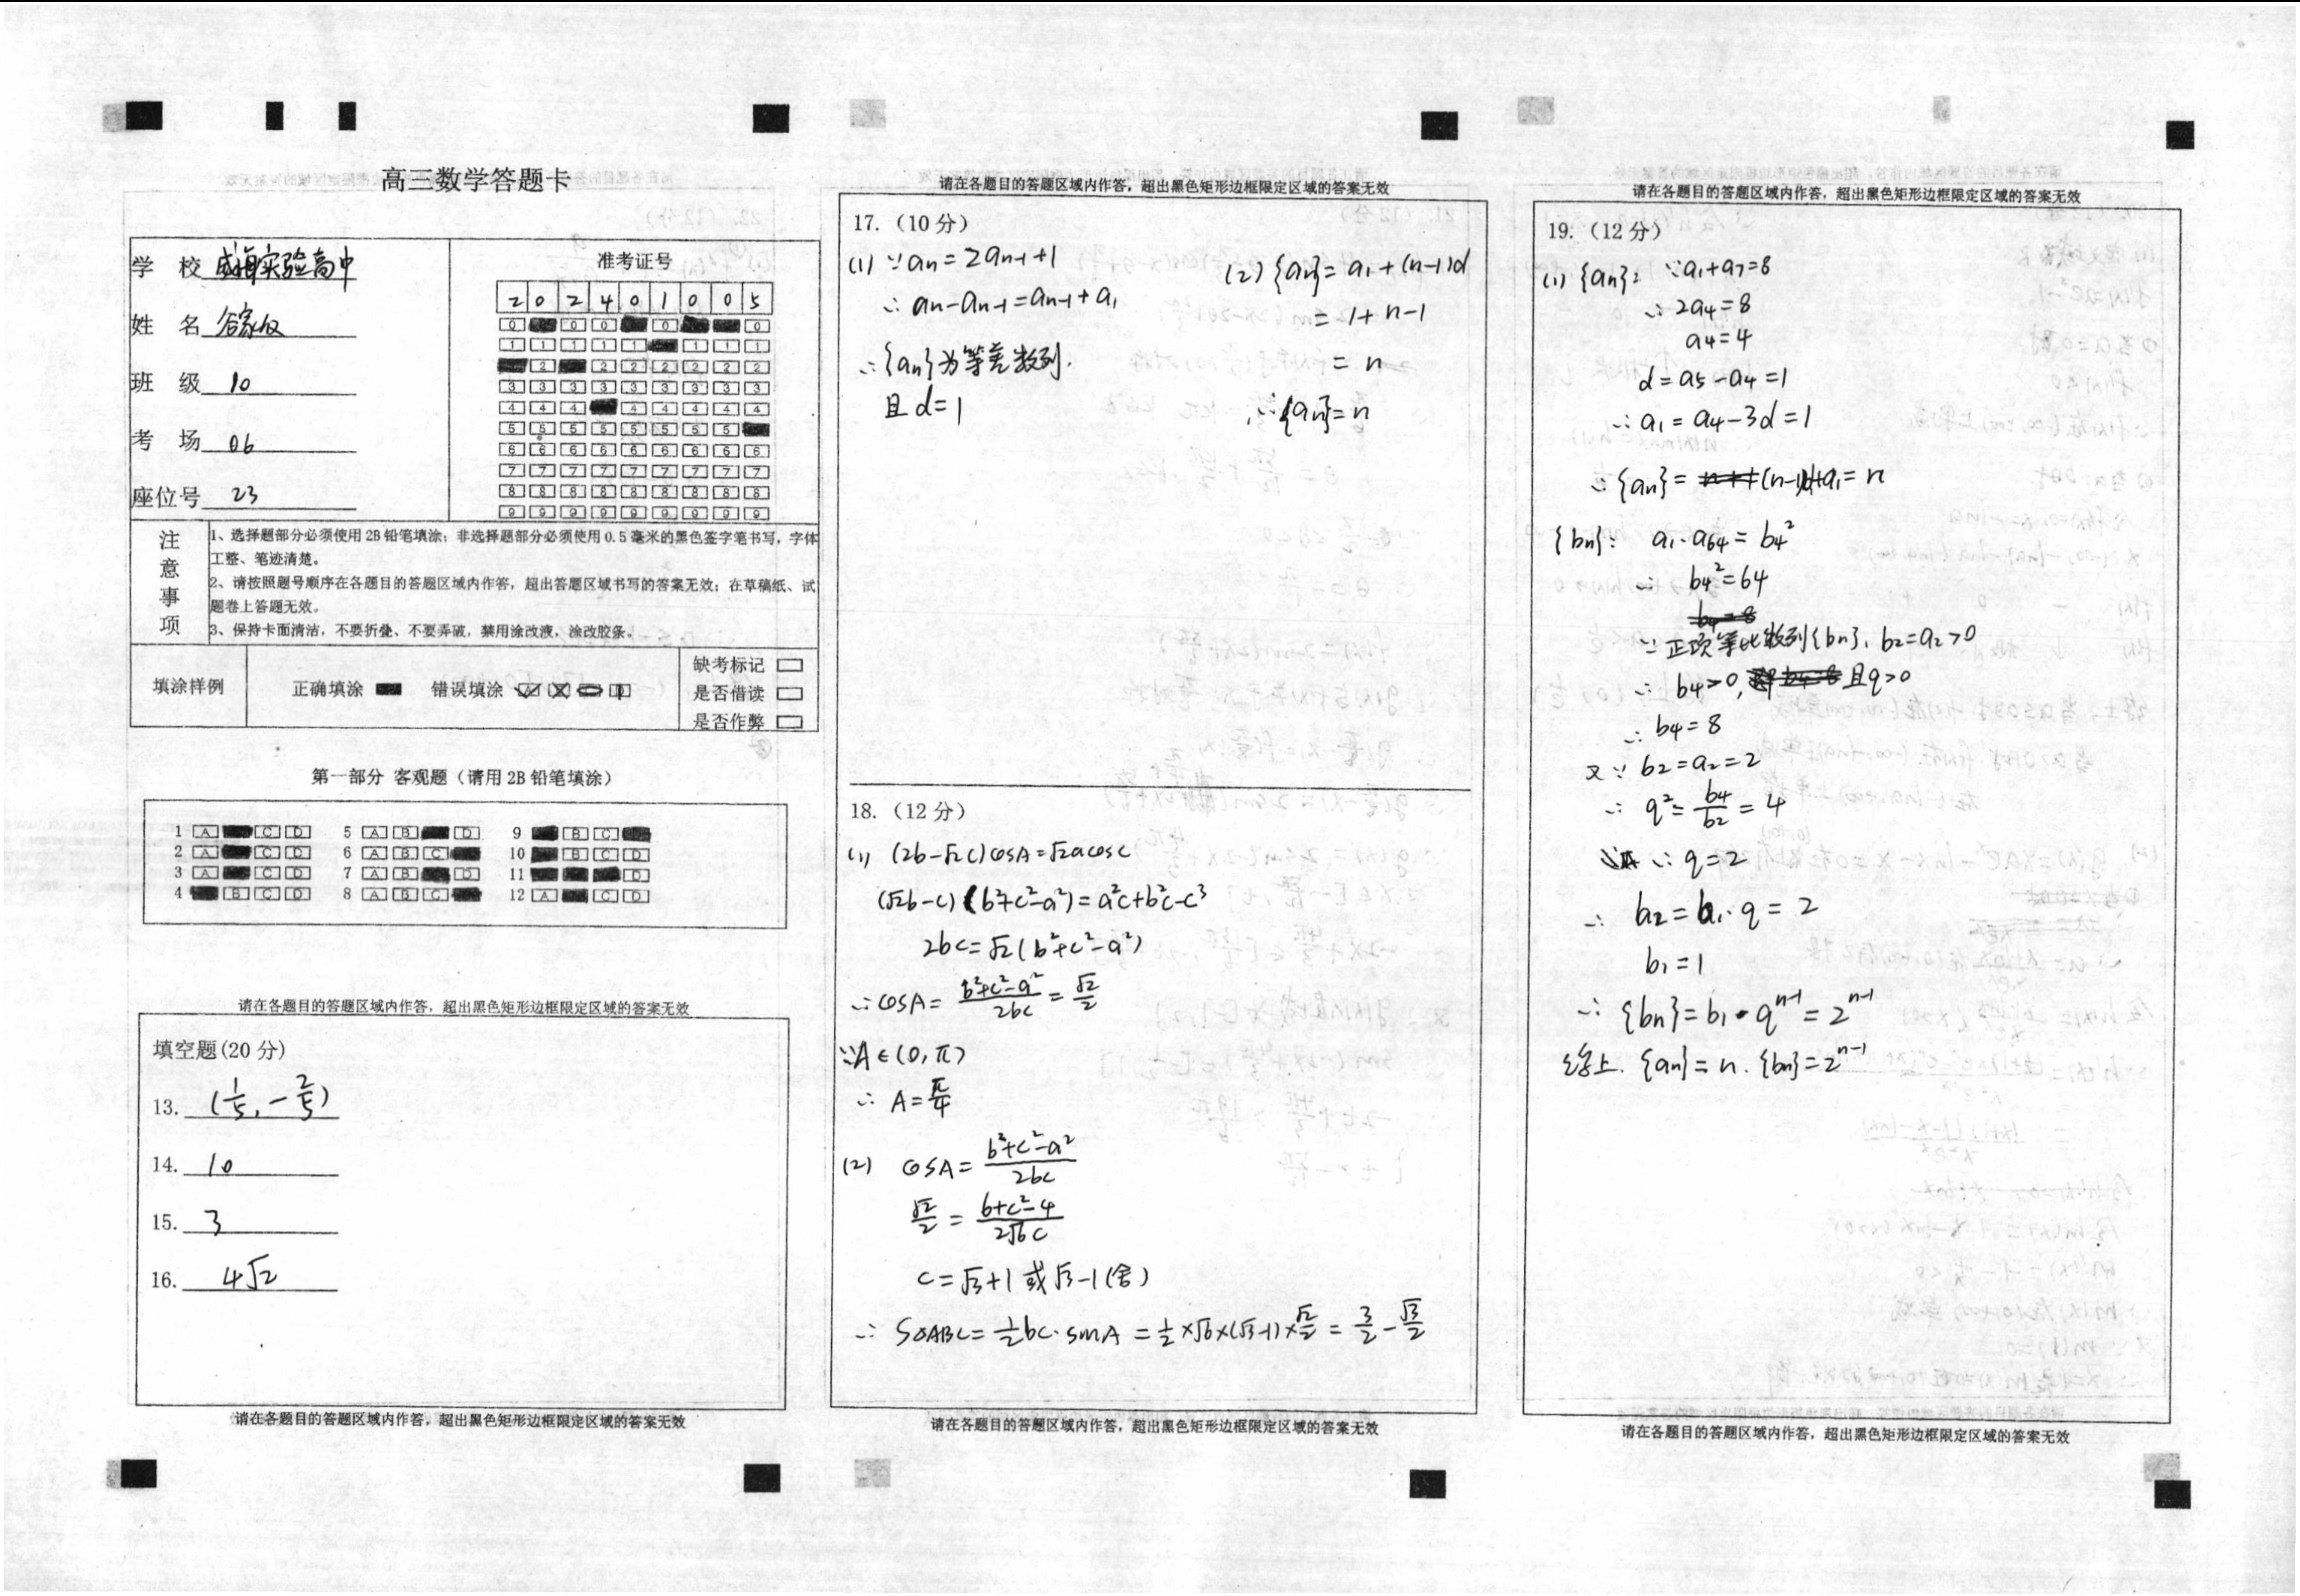 高三数学答题卡
学 校 威海实验高中
姓 名
班 级 10
考 场 06
座位号 23
准考证号
2 0 2 4 0 1 0 0 5
注意事项
1、选择题部分必须使用2B铅笔填涂；非选择题部分必须使用0.5毫米的黑色签字笔书写，字体
工整、笔迹清楚。
2、请按照题号顺序在各题目的答题区域内作答，超出答题区域书写的答案无效；在草稿纸、试
题卷上答题无效。
3、保持卡面清洁，不要折叠、不要弄破，禁用涂改液，涂改胶条。
填涂样例
正确填涂 错误填涂
缺考标记
是否借读
是否作弊
第一部分 客观题（请用2B铅笔填涂）
1 A C D 5 A B D 9 B C
2 A C D 6 A B C 10 B C D
3 A C D 7 A B D 11 D
4 B C D 8 A B C 12 A C D
请在各题目的答题区域内作答，超出黑色矩形边框限定区域的答案无效
填空题(20分)
13. (1/5, -2/5)
14. 10
15. 3
16. 4√2
请在各题目的答题区域内作答，超出黑色矩形边框限定区域的答案无效
请在各题目的答题区域内作答，超出黑色矩形边框限定区域的答案无效
17.（10分）
(1) ∵an=2an-1+1
∴ an-an-1=an-1+a₁
∴{an}为等差数列.
且 d=1
(2) {an}=a₁+(n-1)d
= 1+n-1
= n
∴{an}=n
18.（12分）
(1) (2b-√2c)cosA=√2acosc
(√2b-c)(b²+c²-a²)=a²c+b²c-c³
2bc=√2(b²+c²-a²)
∴cosA= (b²+c²-a²)/2bc = √2/2
∵A∈(0,π)
∴ A=π/4
(2) cosA= (b²+c²-a²)/2bc
√2/2 = (b+c²-4)/2√6c
c=√3+1 或 √3-1 (舍)
∴ S△ABC=1/2bc·sinA =1/2×√6×(√3-1)×√2/2 = 3/2-√3/2
请在各题目的答题区域内作答，超出黑色矩形边框限定区域的答案无效
请在各题目的答题区域内作答，超出黑色矩形边框限定区域的答案无效
19.（12分）
(1) {an}: ∵a₁+a₇=8
∴ 2a₄=8
a₄=4
d=a₅-a₄=1
∴a₁=a₄-3d=1
∴{an}=(n-1)d+a₁=n
{bn}: a₁·a₆₄=b₄²
∴ b₄²=64
b₄=8
∵正项等比数列{bn}, b₂=a₂>0
∴ b₄>0, 且q>0
∴ b₄=8
又∵ b₂=a₂=2
∴ q²= b₄/b₂ = 4
∴ q=2
∴ b₂=b₁·q=2
b₁=1
∴ {bn}=b₁·qⁿ⁻¹=2ⁿ⁻¹
综上. {an}=n. {bn}=2ⁿ⁻¹
请在各题目的答题区域内作答，超出黑色矩形边框限定区域的答案无效